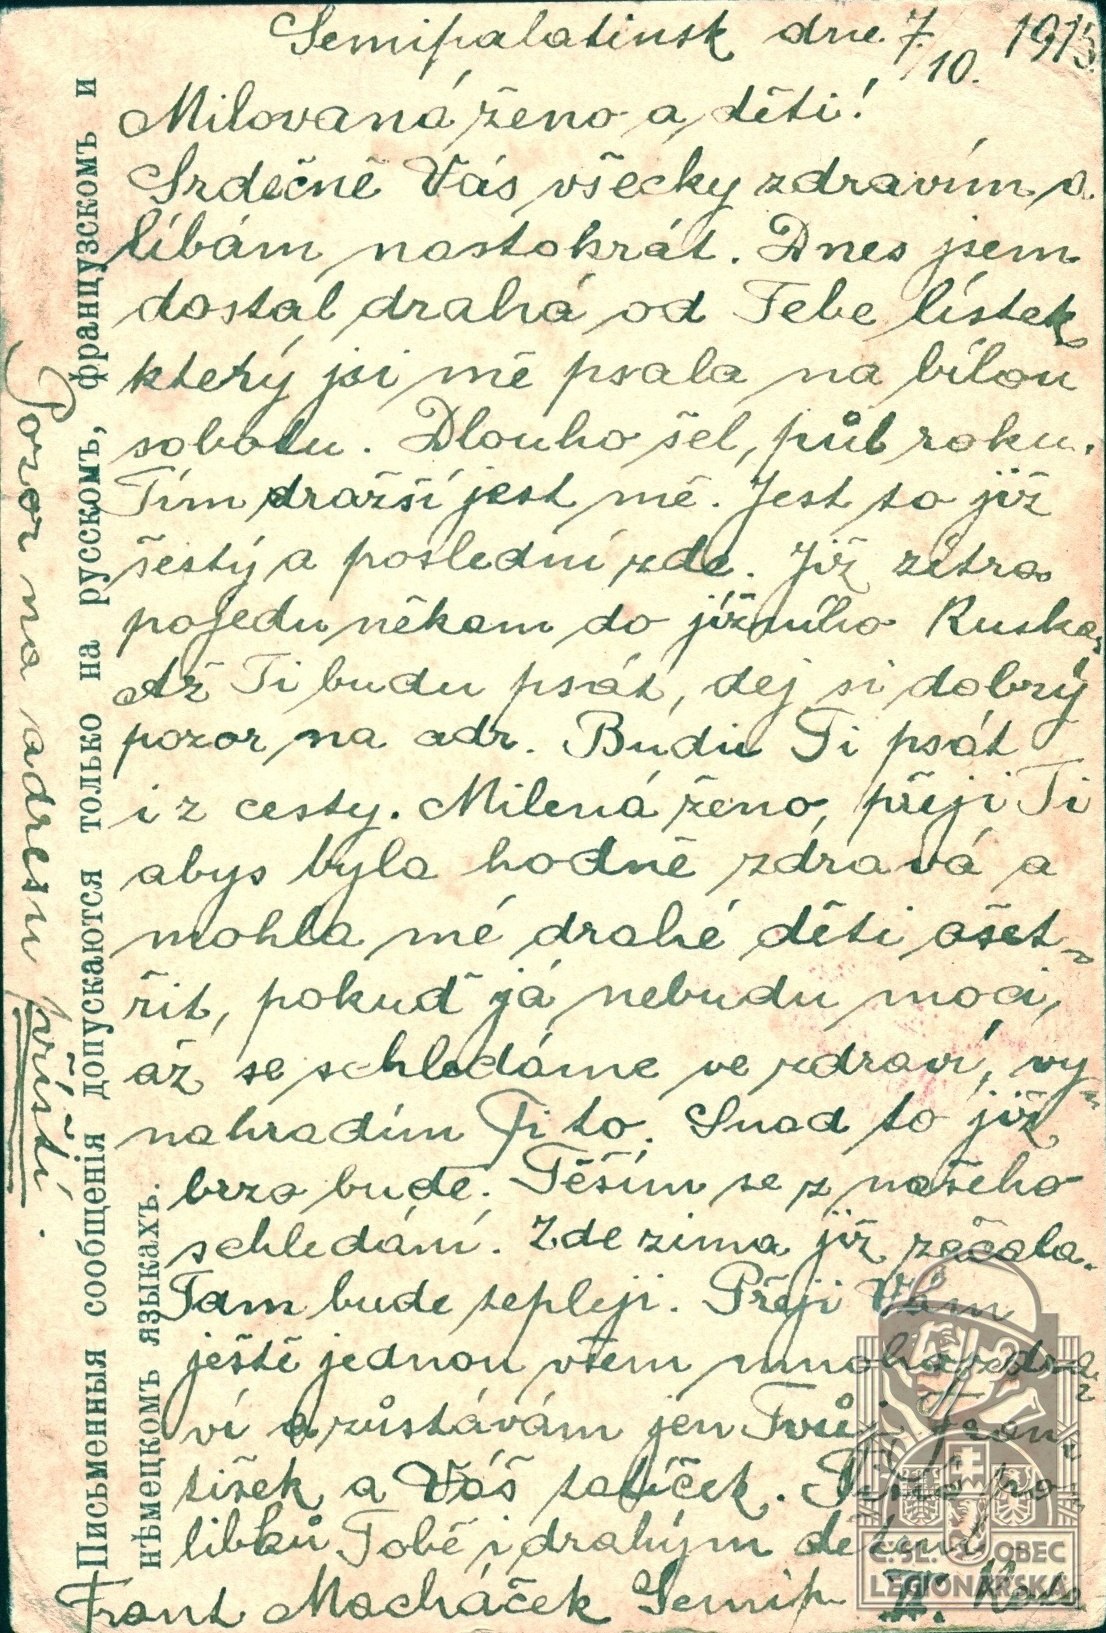 Semipalatinsk dne 7./10. 1915
Milovaná ženo a děti!
Srdečně Vás všecky zdravím a
líbám nastokrát. Dnes jsem
dostal drahá od Tebe lístek
který jsi mě psala na bílou
sobotu. Dlouho šel, půl roku.
Tím dražší jest mě. Jest to již
šestý a poslední zde. Již zítra
pojedu někam do jižního Ruska,
Až Ti budu psát, dej si dobrý
pozor na adr. Budu Ti psát
i z cesty. Milená ženo, přeji Ti
abys byla hodně zdravá a
mohla mé drahé děti ošet-
řit, pokud já nebudu moci,
až se shledáme ve zdraví, vy-
nahradím Ti to. Snad to již
brzo bude. Těším se z našeho
schledání. Zde zima již začala.
Tam bude tepleji. Přeji Vám
ještě jednou všem mnoho zdra-
ví a zůstávám jen Tvůj Fran-
tišek a Váš tatíček.
libků Tobě i drahým dětem
Frant Macháček Semip.
Pozor na adresu příští.
Письменныя сообщенія допускаются только на русскомъ, французскомъ и
нѣмецкомъ языкахъ.
Č. SL. OBEC
LEGIONÁŘSKÁ